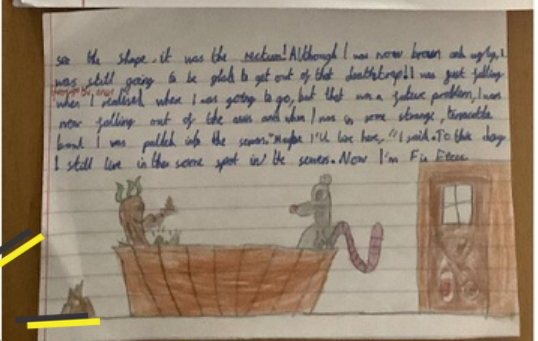 see the shape. it was the rectum! Although I was now brown and ugly, I
was still going to be glad to get out of that deathtrap! I was just falling
when I realised where I was going to go, but that was a future problem, I was
now falling out of the anus and when I was in some strange,
bowl I was pulled into the sewers. "Maybe I'll live here," I said. To this day
I still live in the same spot in the sewers. Now I'm